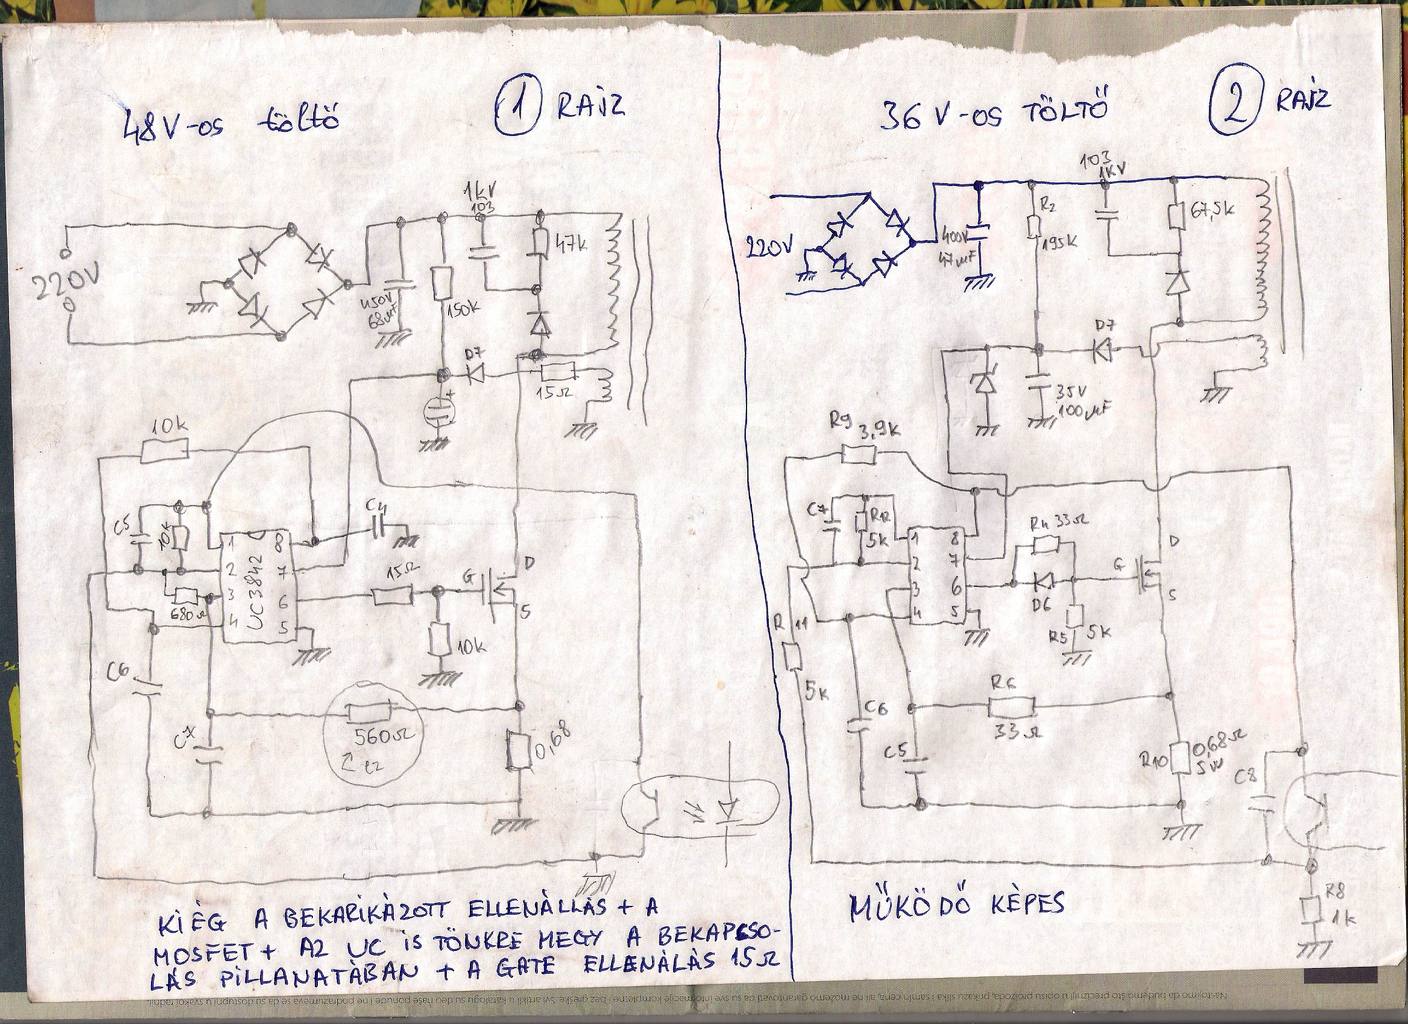 48V-os töltő
1 RAJZ
220V
450V
68µF
150k
1kV
103
47k
D7
15Ω
10k
C5
10k
680Ω
1
2
3
4
UC3842
8
7
6
5
C4
15Ω
G
D
S
10k
C6
C7
560Ω
ez
0,68
KIÉG A BEKARIKÁZOTT ELLENÁLLÁS + A
MOSFET + AZ UC IS TÖNKRE MEGY A BEKAPCSO-
LÁS PILLANATÁBAN + A GATE ELLENÁLÁS 15Ω
36V-OS TÖLTŐ
2 RAJZ
220V
400V
47µF
R2
195k
103
1KV
67,5k
D7
35V
100µF
R9 3,9k
C7
R12
5k
1
2
3
4
8
7
6
5
R4 33Ω
D6
R5 5k
G
D
S
R11
5k
C6
C5
R6
33Ω
R10
0,68Ω
5W
C8
R8
1k
MŰKÖDŐ KÉPES